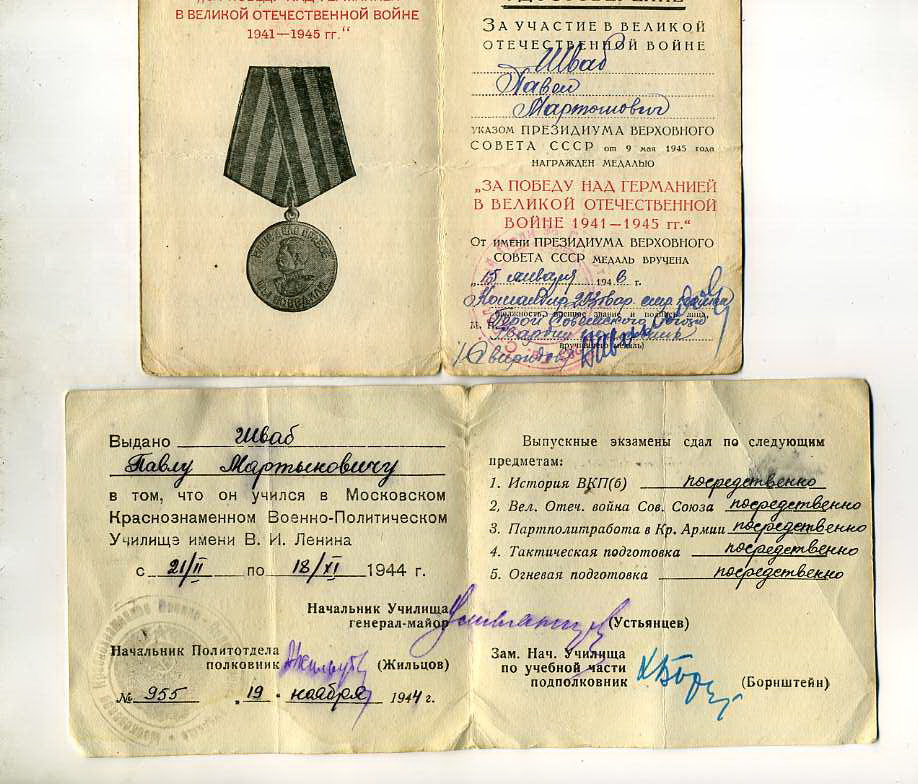 „ЗА ПОБЕДУ НАД ГЕРМАНИЕЙ
В ВЕЛИКОЙ ОТЕЧЕСТВЕННОЙ ВОЙНЕ
1941—1945 гг.“
УДОСТОВЕРЕНИЕ
ЗА УЧАСТИЕ В ВЕЛИКОЙ
ОТЕЧЕСТВЕННОЙ ВОЙНЕ
Шваб
Павел
Мартынович
УКАЗОМ ПРЕЗИДИУМА ВЕРХОВНОГО
СОВЕТА СССР от 9 мая 1945 года
НАГРАЖДЕН МЕДАЛЬЮ
„ЗА ПОБЕДУ НАД ГЕРМАНИЕЙ
В ВЕЛИКОЙ ОТЕЧЕСТВЕННОЙ
ВОЙНЕ 1941—1945 гг.“
От имени ПРЕЗИДИУМА ВЕРХОВНОГО
СОВЕТА СССР МЕДАЛЬ ВРУЧЕНА
„15 января 1946 г.
Командир
Герой Советского Союза
Гвардии
М. П.
НАШЕ ДЕЛО ПРАВОЕ
МЫ ПОБЕДИЛИ
Выдано Шваб
Павлу Мартыновичу
в том, что он учился в Московском
Краснознаменном Военно-Политическом
Училище имени В. И. Ленина
с 21/II по 18/XI 1944 г.
Начальник Училища
генерал-майор (Устьянцев)
Начальник Политотдела
полковник (Жильцов)
№ 955 . 19 . ноября 1944 г.
Выпускные экзамены сдал по следующим
предметам:
1. История ВКП(б) посредственно
2. Вел. Отеч. война Сов. Союза посредственно
3. Партполитработа в Кр. Армии посредственно
4. Тактическая подготовка посредственно
5. Огневая подготовка посредственно
Зам. Нач. Училища
по учебной части
подполковник (Борнштейн)